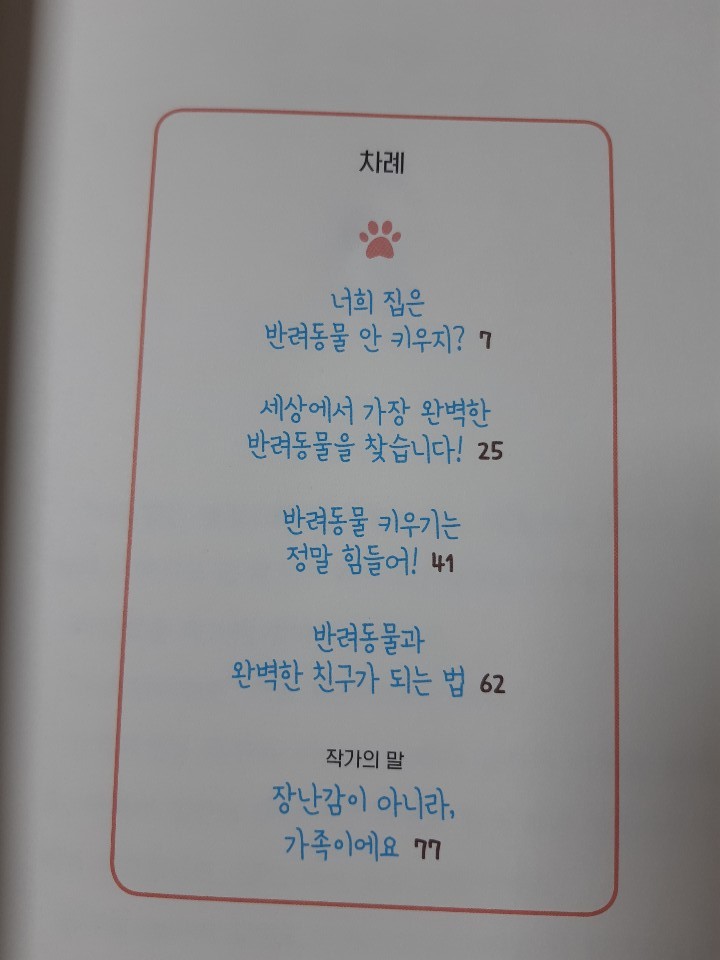 차례
너희 집은
반려동물 안 키우지? 7
세상에서 가장 완벽한
반려동물을 찾습니다! 25
반려동물 키우기는
정말 힘들어! 41
반려동물과
완벽한 친구가 되는 법 62
작가의 말
장난감이 아니라,
가족이에요 77